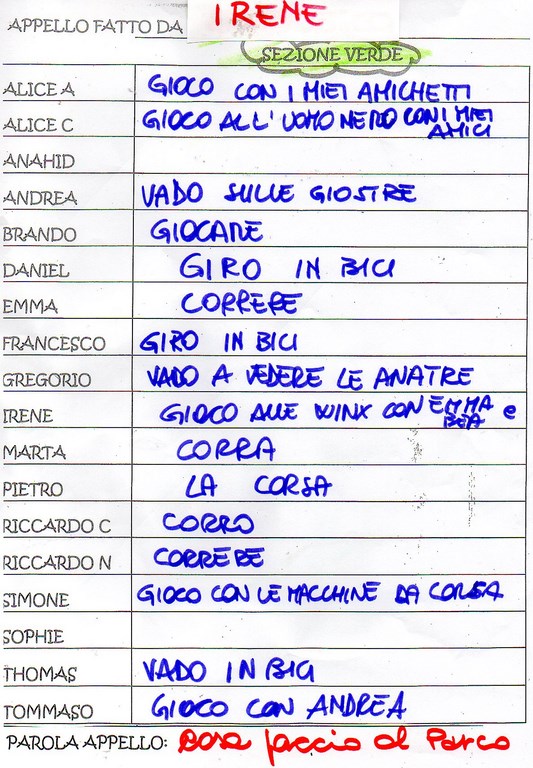 APPELLO FATTO DA IRENE
SEZIONE VERDE
ALICE A GIOCO CON I MIEI AMICHETTI
ALICE C GIOCO ALL'UOMO NERO CON I MIEI AMICI
ANAHID
ANDREA VADO SULLE GIOSTRE
BRANDO GIOCARE
DANIEL GIRO IN BICI
EMMA CORRERE
FRANCESCO GIRO IN BICI
GREGORIO VADO A VEDERE LE ANATRE
IRENE GIOCO ALLE WINX CON EMMA e BEA
MARTA CORRA
PIETRO LA CORSA
RICCARDO C CORRO
RICCARDO N CORRERE
SIMONE GIOCO CON LE MACCHINE DA CORSA
SOPHIE
THOMAS VADO IN BICI
TOMMASO GIOCO CON ANDREA
PAROLA APPELLO: cosa faccio al Parco